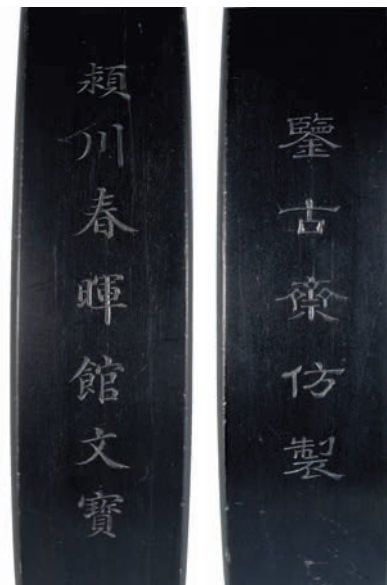 潁川春暉館文寶
鑒古齋仿製